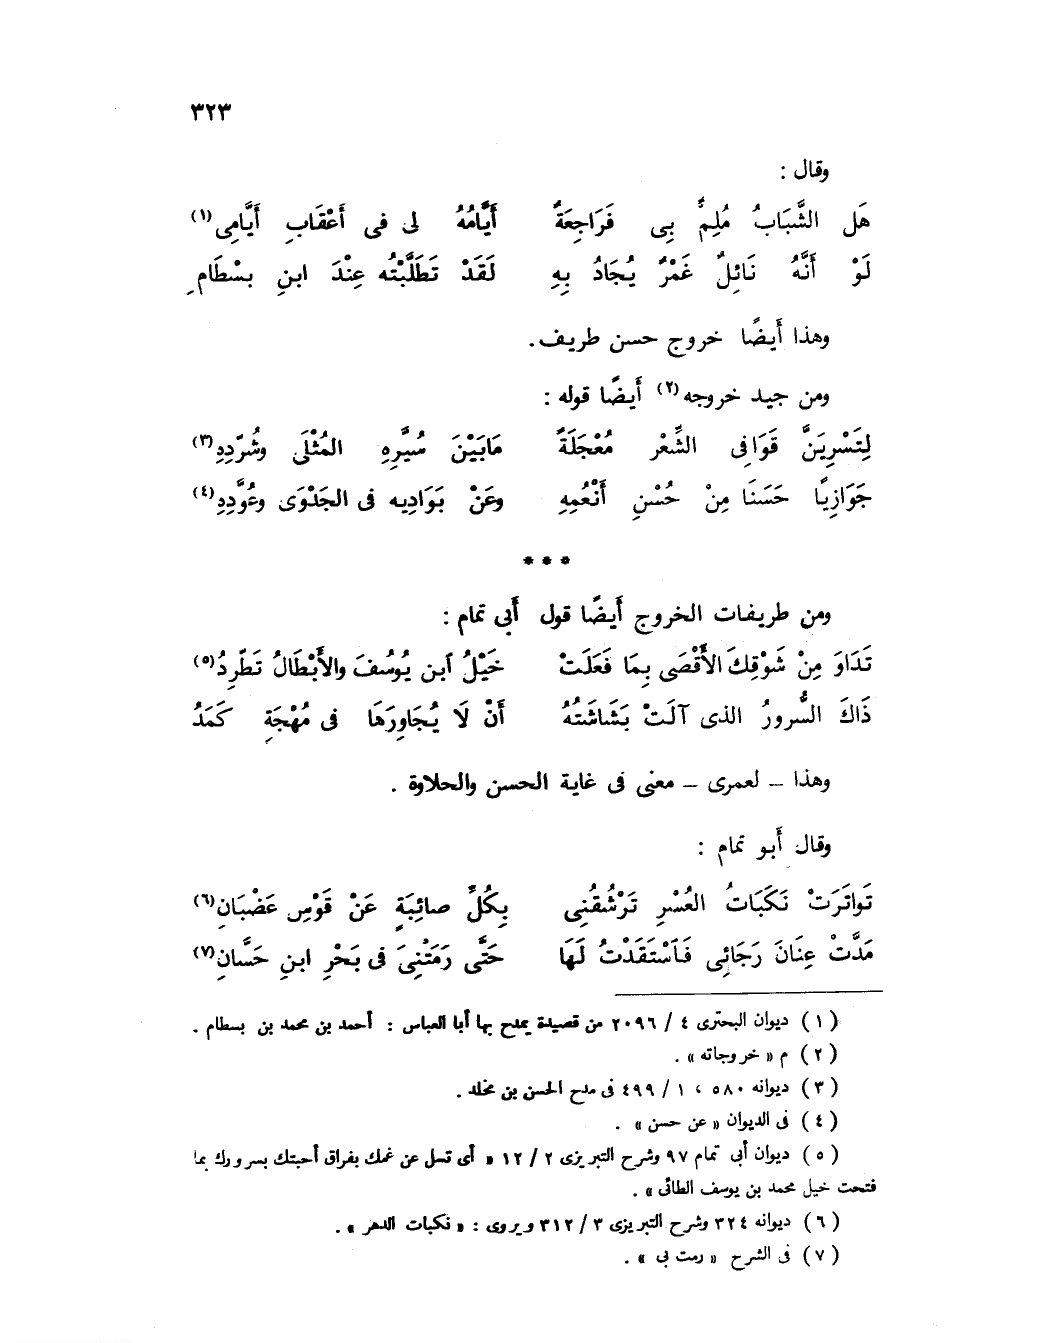 ٣٢٣
وقال :
هَل الشَّبَابُ مُلِمٌّ بِى فَرَاجِعَةٌ أَيَّامُهُ لى فى أَعْقَابِ أَيَّامِى(١)
لَوْ أَنَّهُ نَائِلٌ غَمْرٌ يُجَادُ بِهِ لَقَدْ تَطَلَّبْتُه عِنْدَ ابنِ بسْطَامِ
وهذا أَيضًا خروج حسن طريف.
ومن جيد خروجه(٢) أَيضًا قوله :
لِتَسْرِيَنَّ قَوَافى الشِّعْر مُعْجَلَةً مَابَيْنَ سُيَّرِهِ المُثْلَى وشُرَّدِهِ(٣)
جَوَازِيًا حَسَنًا مِنْ حُسْنِ أَنْعُمِهِ وعَنْ بَوَادِيه فى الجَدْوَى وعُوَّدِهِ(٤)
* * *
ومن طريفات الخروج أَيضًا قول أَبى تمام :
تَدَاوَ مِنْ شَوْقِكَ الأَقْصَى بِمَا فَعَلَتْ خَيْلُ ٱبن يُوسُفَ والأَبْطَالُ تَطَّرِدُ(٥)
ذَاكَ السُّرورُ الذى آلَتْ بَشَاشَتُهُ أَنْ لَا يُجَاوِرَهَا فى مُهْجَةٍ كَمَدُ
وهذا – لعمرى – معنى فى غاية الحسن والحلاوة .
وقال أَبو تمام :
تَواتَرَتْ نَكَبَاتُ العُسْرِ تَرْشُقُنِى بِكُلِّ صائِبَةٍ عَنْ قَوْسِ غَضْبَانِ(٦)
مَدَّتْ عِنَانَ رَجَائِى فَٱسْتَقَدْتُ لَهَا حَتَّى رَمَتْنِىَ فى بَحْرِ ابنِ حَسَّانِ(٧)
( ١ ) ديوان البحترى ٤ / ٢٠٩٦ من قصيدة يمدح بها أبا العباس : أحمد بن محمد بن بسطام .
( ٢ ) م « خروجاته » .
( ٣ ) ديوانه ٥٨٠ ، ١ / ٤٩٩ فى مدح الحسن بن مخلد .
( ٤ ) فى الديوان « عن حسن » .
( ٥ ) ديوان أبى تمام ٩٧ وشرح التبريزى ٢ / ١٢ « أى تسل عن غمك بفراق أحبتك بسرورك بما
فتحت خيل محمد بن يوسف الطائى » .
( ٦ ) ديوانه ٣٢٤ وشرح التبريزى ٣ / ٣١٢ ويروى : « نكبات الدهر » .
( ٧ ) فى الشرح « رمت بى » .